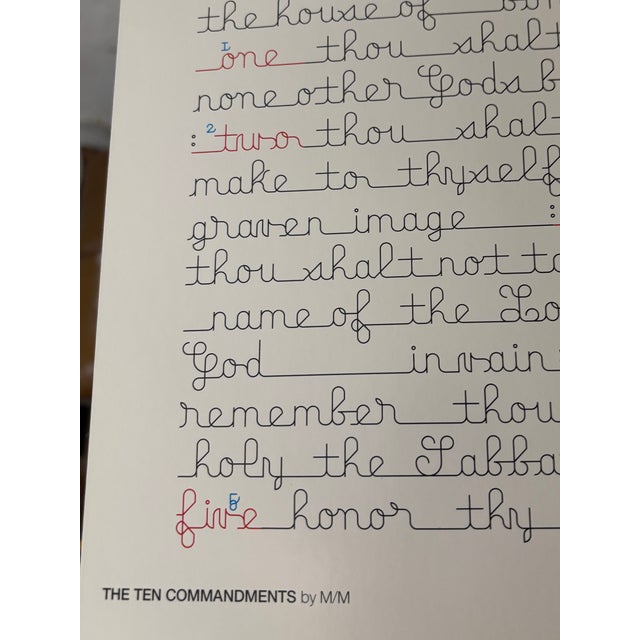 the house of
1
one thou shalt
none other Gods b
: 2 two thou shalt
make to thyself
graven image :
thou shalt not ta
name of the Lo
God in vain
remember thou
holy the Sabba
5
five honor thy
THE TEN COMMANDMENTS by M/M